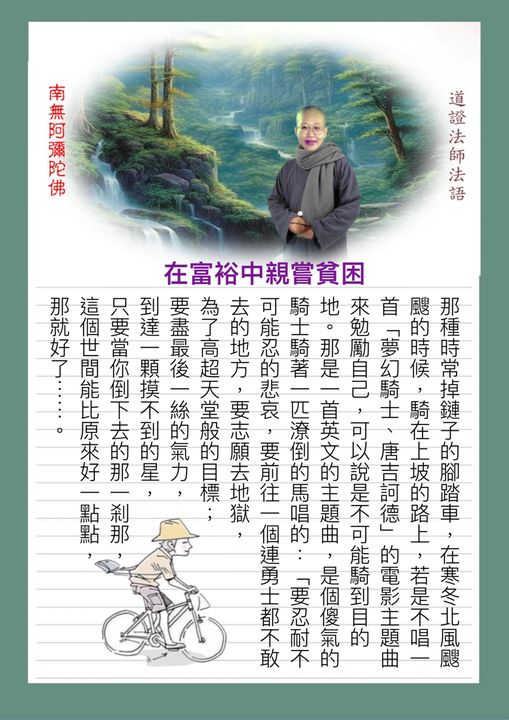 道證法師法語
南無阿彌陀佛
在富裕中親嘗貧困
那種時常掉鏈子的腳踏車，在寒冬北風颼
颼的時候，騎在上坡的路上，若是不唱一
首「夢幻騎士、唐吉訶德」的電影主題曲
來勉勵自己，可以說是不可能騎到目的
地。那是一首英文的主題曲，是個傻氣的
騎士騎著一匹潦倒的馬唱的：「要忍耐不
可能忍的悲哀，要前往一個連勇士都不敢
去的地方，要志願去地獄，
為了高超天堂般的目標；
要盡最後一絲的氣力，
到達一顆摸不到的星，
只要當你倒下去的那一剎那，
這個世間能比原來好一點點，
那就好了……。